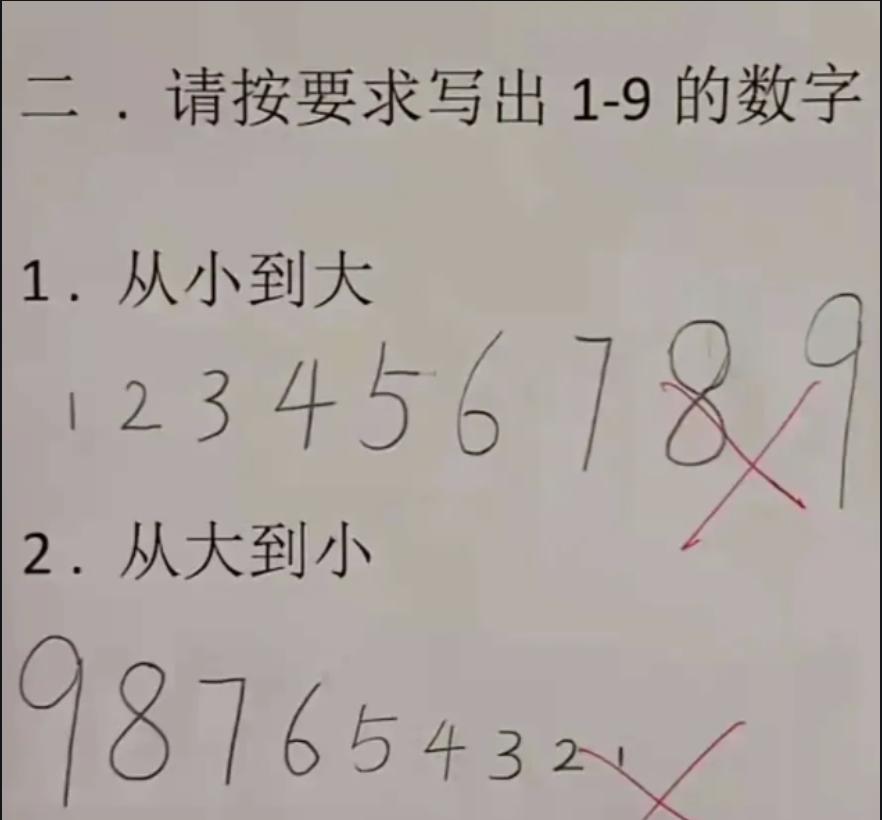 二．请按要求写出 1-9 的数字
1．从小到大
1 2 3 4 5 6 7 8 9
2．从大到小
9 8 7 6 5 4 3 2 1